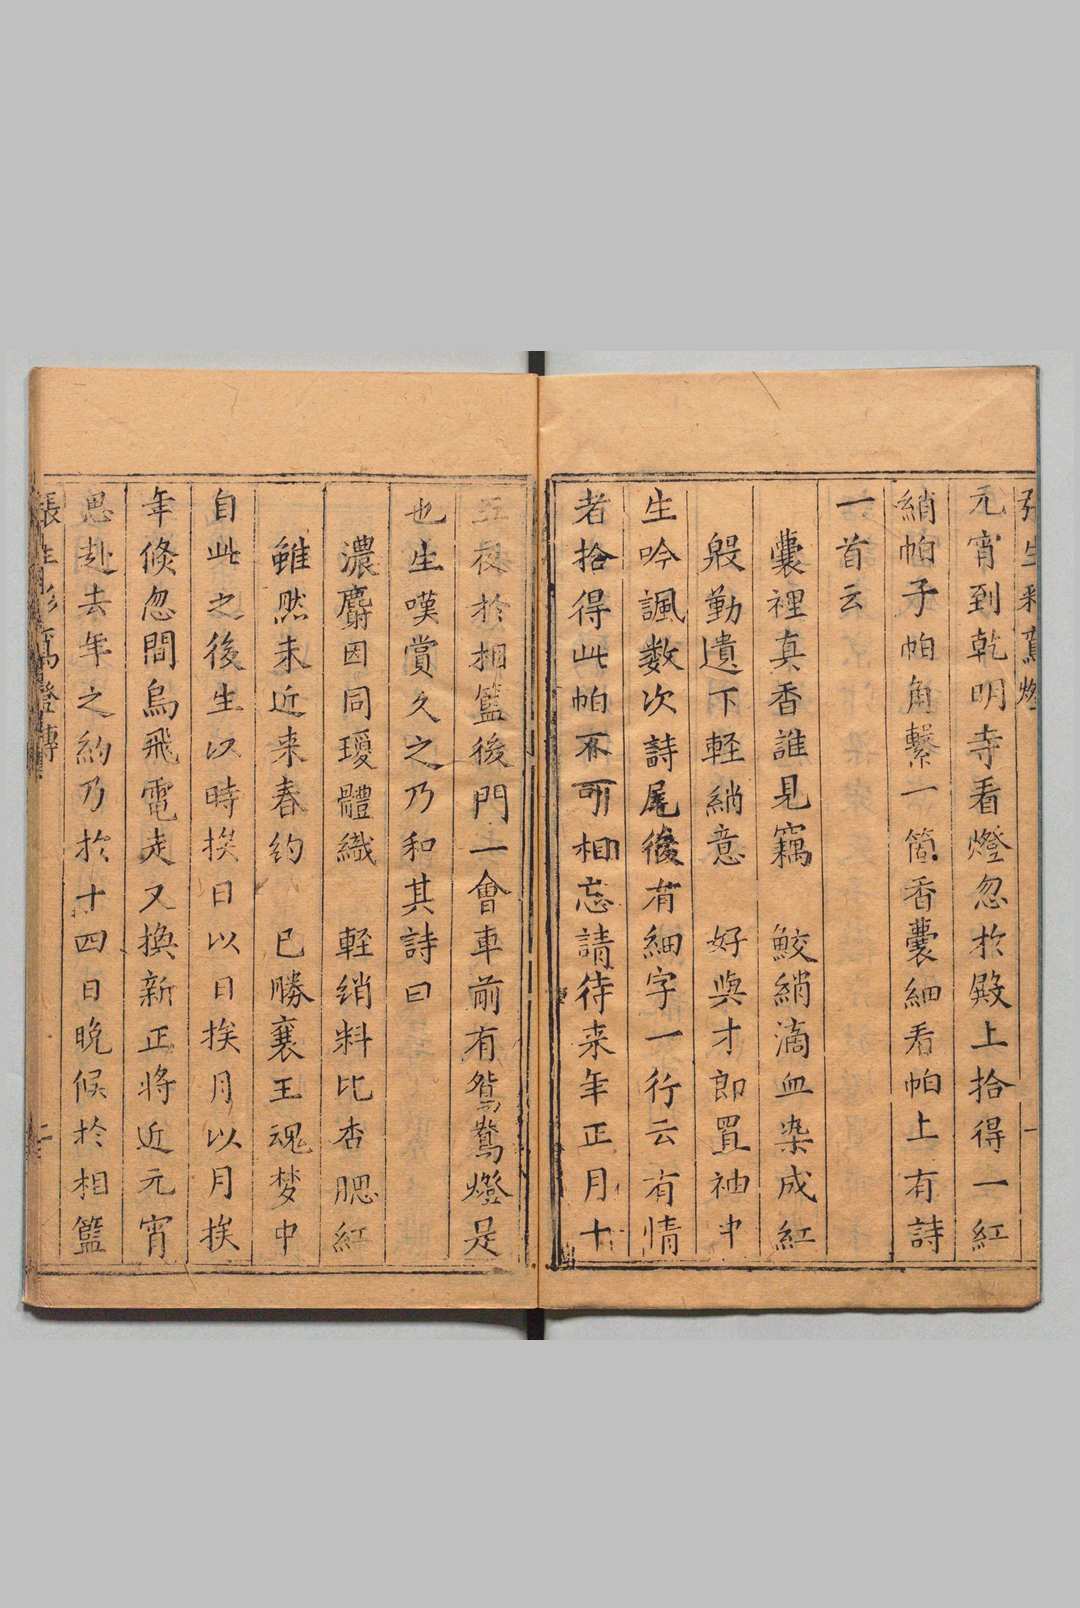 元宵到乾明寺看燈忽於殿上拾得一紅
綃帕子帕角繫一箇香囊細看帕上有詩
一首云
囊裡真香誰見竊　鮫綃滴血染成紅
殷勤遺下軽綃意　好與才郎置袖中
生吟諷数次詩尾後有細字一行云有情
者拾得此帕不可相忘請待来年正月十
五夜於相籃後門一會車前有鴛鴦燈是
也生嘆賞久之乃和其詩曰
濃麝因同瓊體纖　軽綃料比杏腮紅
雖然未近来春約　已勝襄王魂梦中
自此之後生以時挨日以日挨月以月挨
年倏忽間烏飛電走又換新正将近元宵
思赴去年之約乃於十四日晚候於相籃
張生彩鴛燈傳
二